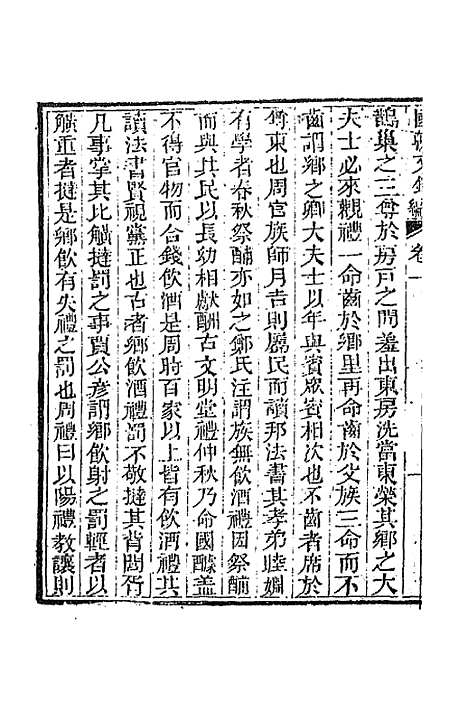 國朝文錄續 卷一
鵲巢之三尊於房戶之間羞出東房洗當東榮其鄉之大
夫士必來觀禮一命齒於鄉里再命齒於父族三命而不
齒謂鄉之卿大夫士以年與賓眾賓相次也不齒者席於
尊東也周官族師月吉則屬民而讀邦法書其孝弟睦婣
有學者春秋祭酺亦如之鄭氏注謂族無飲酒禮因祭酺
而與其民以長幼相獻酬古文明堂禮仲秋乃命國醵蓋
不得官物而合錢飲酒是周時百家以上皆有飲酒禮其
讀法書賢視黨正也古者鄉飲酒禮罰不敬撻其背閭胥
凡事掌其比觵撻罰之事賈公彥謂鄉飲射之罰輕者以
觵重者撻是鄉飲有失禮之罰也周禮曰以陽禮教讓則